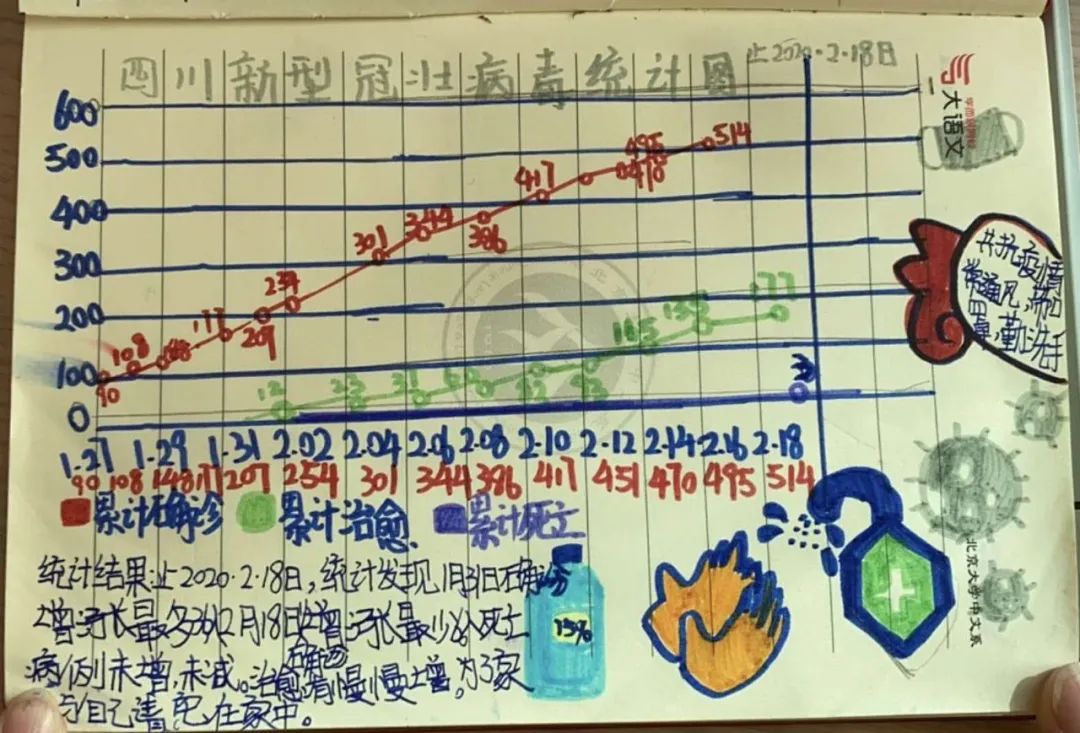 四川新型冠壮病毒统计图
止2020.2.18日
一大语文
600
500
400
300
200
100
0
90
108
148
177
209
237
301
344
386
417
470
495
514
12
23
31
177
3
1.27 1.29 1.31 2.02 2.04 2.06 2.08 2.10 2.12 2.14 2.16 2.18
90 108 148 177 207 254 301 344 386 417 451 470 495 514
累计确诊 累计治愈 累计死亡
共抗疫情
常通风,带口
罩,勤洗手
统计结果:止2020.2.18日,统计发现1月31日确诊
增涨长最多
2月18日
增涨长最少
死亡
病例未增,未减。治愈
慢慢增。为了家
自己请
在家中。
确诊
75%
北京大学中文系